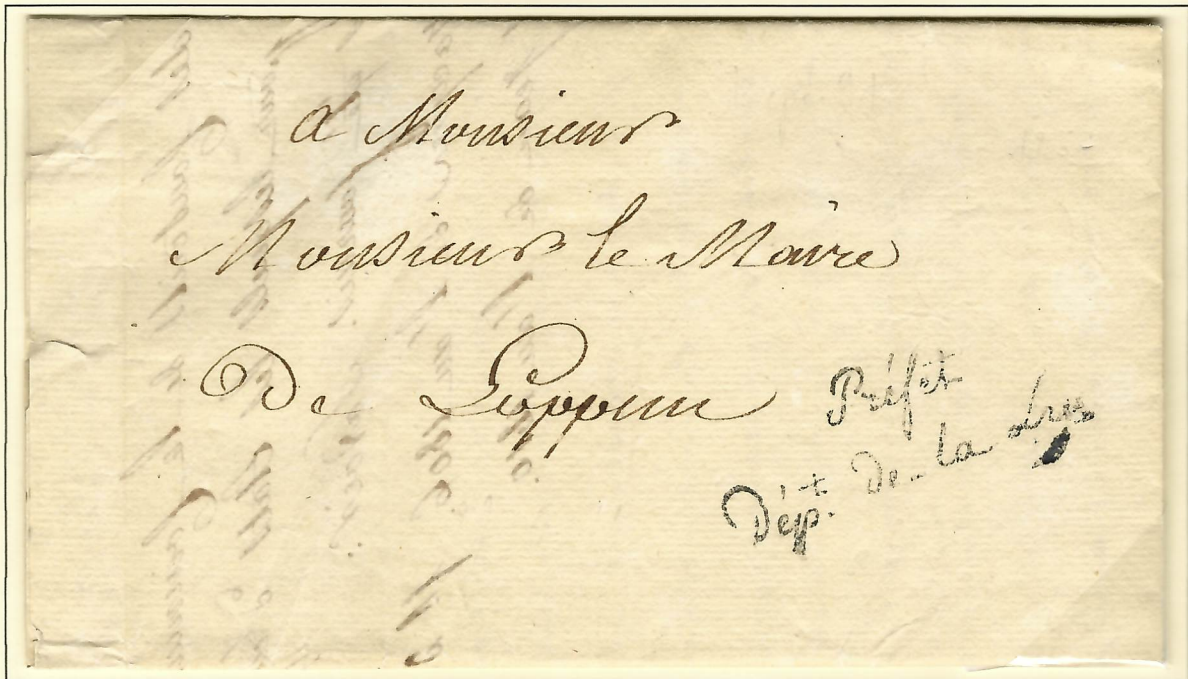 a Monsieur
Monsieur le Maire
De Loppem
Préfet
Dépt. De la Lys